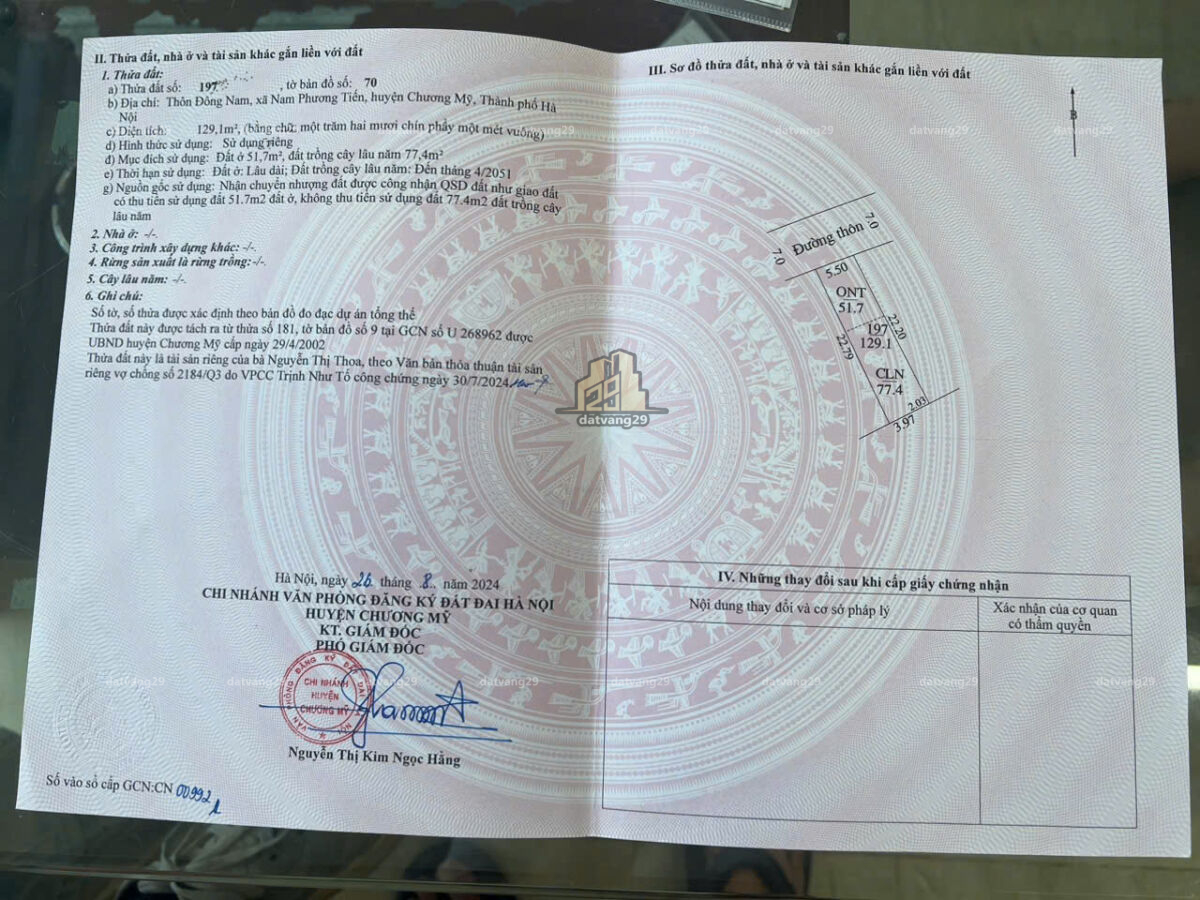 II. Thửa đất, nhà ở và tài sản khác gắn liền với đất
1. Thửa đất:
a) Thửa đất số: 197 , tờ bản đồ số: 70
b) Địa chỉ: Thôn Đông Nam, xã Nam Phương Tiến, huyện Chương Mỹ, Thành phố Hà
Nội
c) Diện tích: 129,1m², (bằng chữ: một trăm hai mươi chín phẩy một mét vuông)
d) Hình thức sử dụng: Sử dụng riêng
đ) Mục đích sử dụng: Đất ở 51,7m², đất trồng cây lâu năm 77,4m²
e) Thời hạn sử dụng: Đất ở: Lâu dài; Đất trồng cây lâu năm: Đến tháng 4/2051
g) Nguồn gốc sử dụng: Nhận chuyển nhượng đất được công nhận QSD đất như giao đất
có thu tiền sử dụng đất 51.7m2 đất ở, không thu tiền sử dụng đất 77.4m2 đất trồng cây
lâu năm
2. Nhà ở: -/-.
3. Công trình xây dựng khác: -/-.
4. Rừng sản xuất là rừng trồng: -/-.
5. Cây lâu năm: -/-.
6. Ghi chú:
Số tờ, số thửa được xác định theo bản đồ đo đạc dự án tổng thể
Thửa đất này được tách ra từ thửa số 181, tờ bản đồ số 9 tại GCN số U 268962 được
UBND huyện Chương Mỹ cấp ngày 29/4/2002
Thửa đất này là tài sản riêng của bà Nguyễn Thị Thoa, theo Văn bản thỏa thuận tài sản
riêng vợ chồng số 2184/Q3 do VPCC Trịnh Như Tố công chứng ngày 30/7/2024
Hà Nội, ngày 26 tháng 8 năm 2024
CHI NHÁNH VĂN PHÒNG ĐĂNG KÝ ĐẤT ĐAI HÀ NỘI
HUYỆN CHƯƠNG MỸ
KT. GIÁM ĐỐC
PHÓ GIÁM ĐỐC
VĂN PHÒNG ĐĂNG KÝ ĐẤT ĐAI HÀ NỘI
CHI NHÁNH
HUYỆN
CHƯƠNG MỸ
Nguyễn Thị Kim Ngọc Hằng
Số vào sổ cấp GCN:CN 00992
III. Sơ đồ thửa đất, nhà ở và tài sản khác gắn liền với đất
B
Đường thôn
7.0
7.0
5.50
ONT
51.7
22.20
197
129.1
22.79
CLN
77.4
2.03
3.97
29
datvang29
IV. Những thay đổi sau khi cấp giấy chứng nhận
Nội dung thay đổi và cơ sở pháp lý
Xác nhận của cơ quan
có thẩm quyền
datvang29 datvang29 datvang29
datvang29 datvang29 datvang29 datvang29 datvang29 datvang29